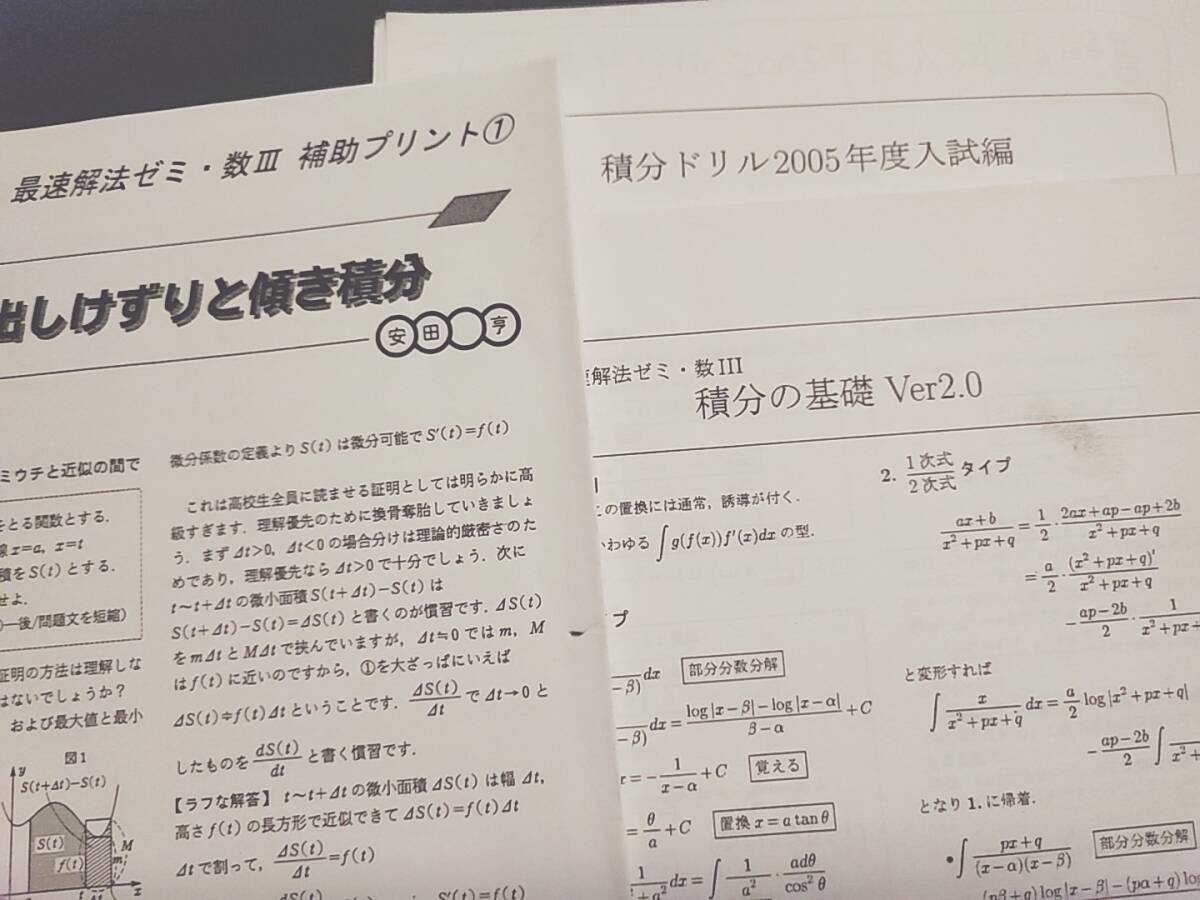 最速解法ゼミ・数Ⅲ 補助プリント①
出しけずりと傾き積分
安田 亨
ミウチと近似の間で
をとる関数とする.
線x=a, x=t
積をS(t)とする.
せよ.
)一後/問題文を短縮)
証明の方法は理解しな
はないでしょうか?
および最大値と最小
図1
y
S(t+Δt)-S(t)
S(t)
f(t)
M
m
t
Δt
x
微分係数の定義よりS(t)は微分可能でS'(t)=f(t)
これは高校生全員に読ませる証明としては明らかに高
級すぎます. 理解優先のために換骨奪胎していきましょ
う. まずΔt>0, Δt<0の場合分けは理論的厳密さのた
めであり, 理解優先ならΔt>0で十分でしょう. 次に
t~t+Δtの微小面積S(t+Δt)-S(t)は
S(t+Δt)-S(t)=ΔS(t)と書くのが慣習です. ΔS(t)
をmΔtとMΔtで挟んでいますが, Δt≒0ではm, M
はf(t)に近いのですから, ①を大ざっぱにいえば
ΔS(t)≒f(t)Δtということです. ΔS(t)/Δt でΔt→0と
したものを dS(t)/dt と書く慣習です.
【ラフな解答】 t~t+Δtの微小面積ΔS(t)は幅Δt,
高さf(t)の長方形で近似できてΔS(t)=f(t)Δt
Δtで割って, ΔS(t)/Δt=f(t)
S'(t)=f(t)
積分ドリル2005年度入試編
解法ゼミ・数III
積分の基礎 Ver2.0
この置換には通常, 誘導が付く.
いわゆる ∫g(f(x))f'(x)dx の型.
イプ
-β) dx 部分分数分解
-β) dx = (log|x-β|-log|x-α|)/(β-α) +C
x = -1/(x-α) +C 覚える
= θ/a +C 置換 x=a tanθ
1/ +a² dx = ∫ 1/a² · adθ/cos²θ
2. 1次式/2次式 タイプ
(ax+b)/(x²+px+q) = 1/2 · (2ax+ap-ap+2b)/(x²+px+q)
= a/2 · (x²+px+q)'/(x²+px+q)
-(ap-2b)/2 · 1/(x²+px+
と変形すれば
∫ x/(x²+px+q) dx = a/2 log|x²+px+q|
-(ap-2b)/2 ∫ x²+
となり 1. に帰着.
•∫ (px+q)/((x-α)(x-β)) 部分分数分解
(pβ+q)log|x-β|-(pα+q)log